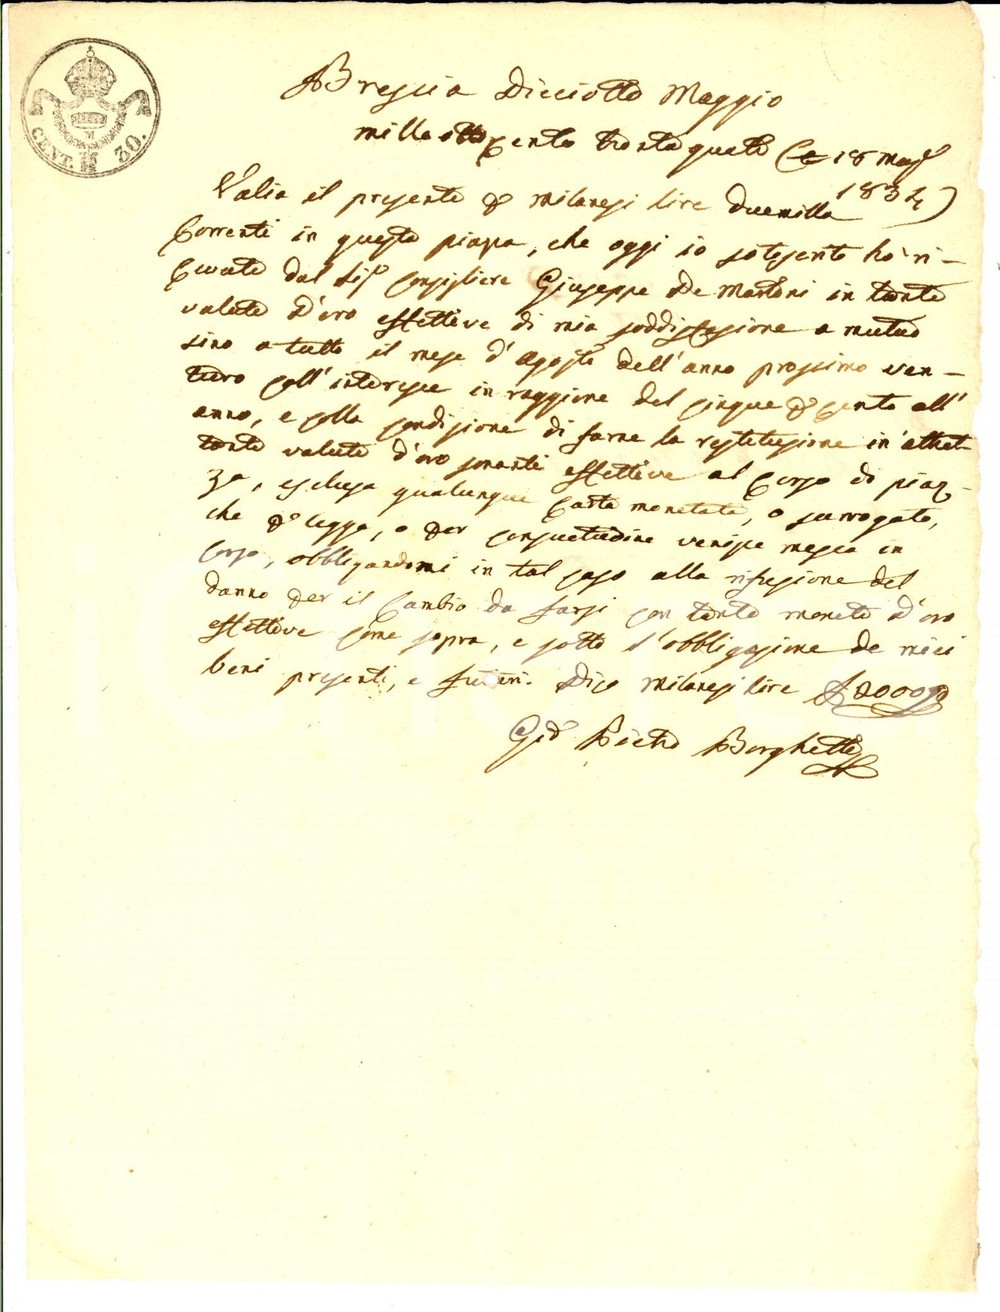 CENT. 30.
Brescia Dicciotto Maggio
mille otto cento trenta quatt (18 Magº
1834)
Valia il presente p milanesi lire duemilla
Correnti in questa piazza, che oggi io sotoscrito hò ri-
cevute dal Sigr Consigliere Giuseppe De Martini in tante
valute d'oro effettive di mia soddisfazione a mutuo
sino a tutto il mese d'Agosto dell'anno prossimo ven-
turo coll'interesse in raggione del cinque p cento all'
anno, e colla condizione di farne la restituzione in altret-
tante valute d'oro sonanti effettive al Corso di piaz-
za, esclusa qualunque Carta monetata, o surrogato,
che p legge, o per consuetudine venisse messa in
corso, obbligandomi in tal caso alla rifusione del
danno per il Cambio da farsi con tante monete d'oro
effettive come sopra, e sotto l'obbligazione de miei
beni presenti, e futuri. Dico milanesi lire £ 2000
Gio Pietro Borghetti